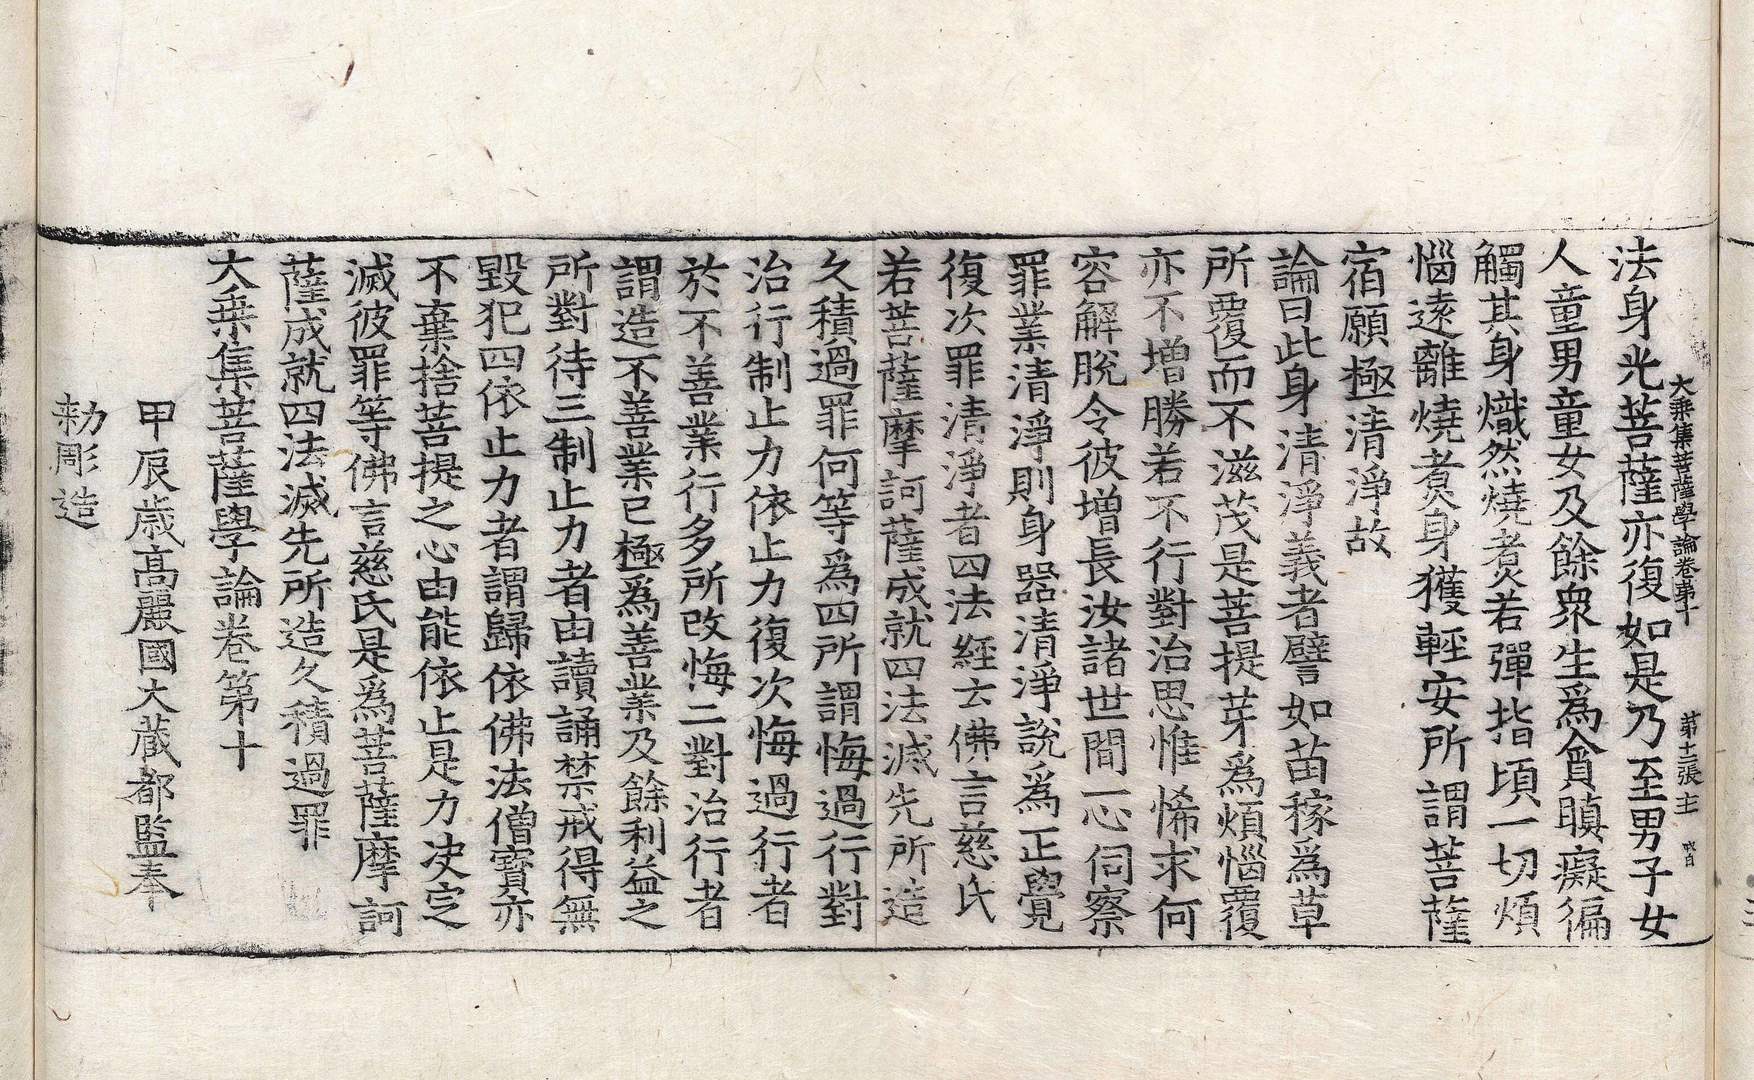 大乘集菩薩學論卷第十 第十二張 主
法身光菩薩亦復如是乃至男子女
人童男童女及餘衆生爲貪瞋癡徧
觸其身熾然燒煑若彈指頃一切煩
惱遠離燒煑身獲輕安所謂菩薩
宿願極清淨故
論曰此身清淨義者譬如苗稼爲草
所覆而不滋茂是菩提芽爲煩惱覆
亦不增勝若不行對治思惟悕求何
容解脫令彼增長汝諸世間一心伺察
罪業清淨則身器清淨說爲正覺
復次罪清淨者四法經云佛言慈氏
若菩薩摩訶薩成就四法滅先所造
久積過罪何等爲四所謂悔過行對
治行制止力依止力復次悔過行者
於不善業行多所改悔二對治行者
謂造不善業已極爲善業及餘利益之
所對待三制止力者由讀誦禁戒得無
毀犯四依止力者謂歸依佛法僧寶亦
不棄捨菩提之心由能依止是力决定
滅彼罪等佛言慈氏是爲菩薩摩訶
薩成就四法滅先所造久積過罪
大乘集菩薩學論卷第十
甲辰歳高麗國大藏都監奉
勑彫造